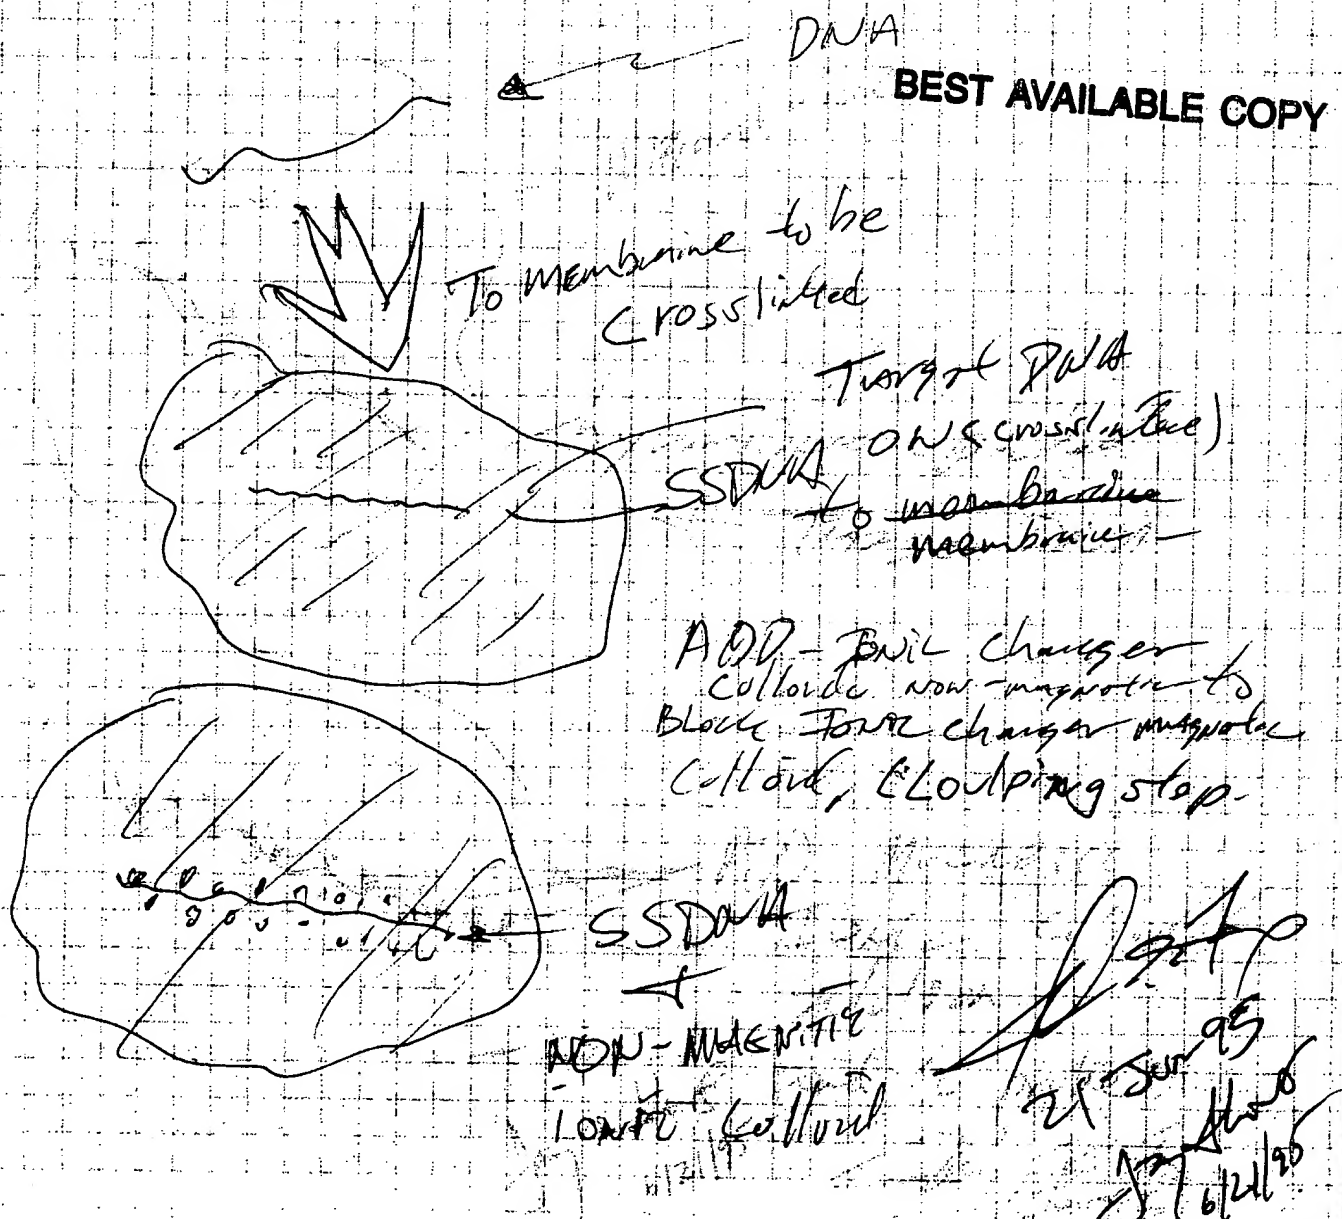 DNA
BEST AVAILABLE COPY
To Membraine to be
Crosslinked
Target DNA
ON (crosslinked)
SSDNA
to membraine
membraine
ADD - Ionic charger
Colloidal non-magnetic to
Block Ionic charger magnetic
Colloid,
step.
SSDNA
+
NON-MAGNETIC
IONIC Colloid
21 Jun 95
6/21/95